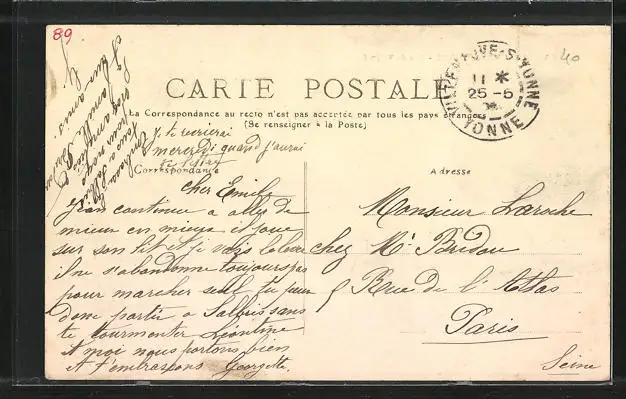 89
CARTE POSTALE
La Correspondance au recto n'est pas acceptée par tous les pays étrangers
(Se renseigner à la Poste)
VILLENEUVE-S-YONNE
11 *
25-6
YONNE
40
je te verrerai
mercredi quand j'aurai
Correspondance
Adresse
cher Emile
Jean continue a aller de
mieux en mieux il joue
sur son lit et je vais le lever
il ne s'abandonne toujours pas
pour marcher seul tu peux
donc partir a Salbris sans
te tourmenter Léontine
et moi nous portons bien
et t'embrassons Georgette
Monsieur Laroche
chez Mr Bridou
9 Rue de l'Atlas
Paris
Seine